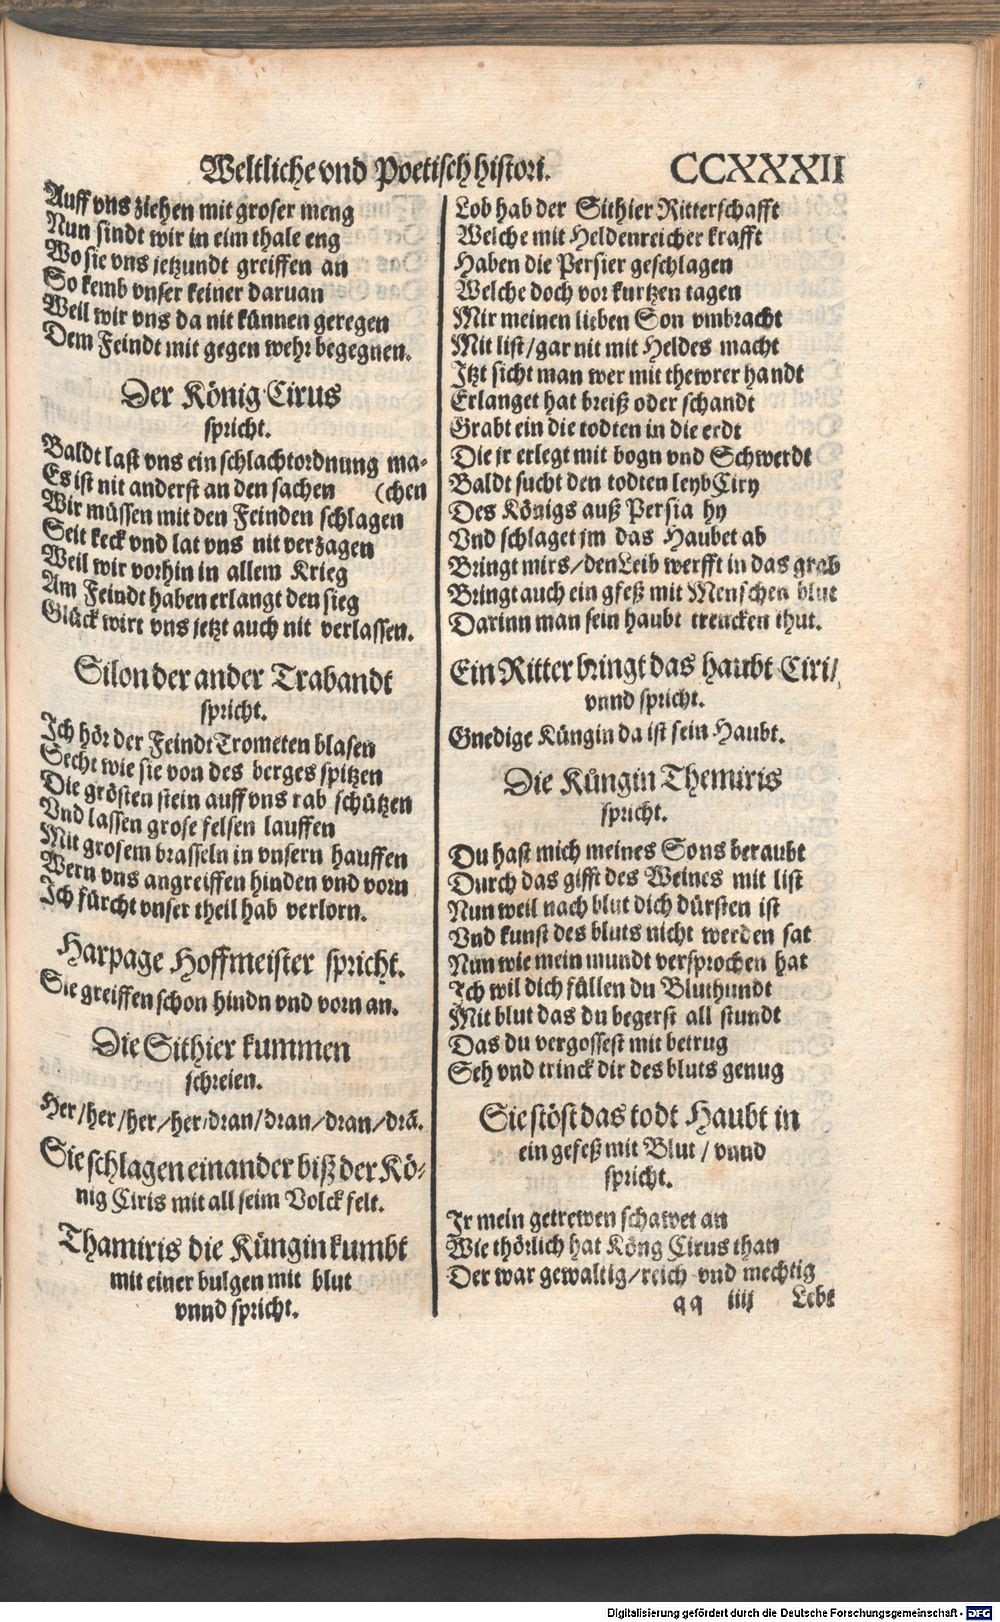 Weltliche vnd Poetisch histori. CCXXXII
Auff vns ziehen mit groser meng
Nun sindt wir in eim thale eng
Wo sie vns jetzundt greiffen an
So kemb vnser keiner daruan
Weil wir vns da nit künnen geregen
Dem Feindt mit gegen wehr begegnen.
Der König Cirus
spricht.
Baldt last vns ein schlachtordnung ma-
Es ist nit anderst an den sachen (chen
Wir müssen mit den Feinden schlagen
Seit keck vnd lat vns nit verzagen
Weil wir vorhin in allem Krieg
Am Feindt haben erlangt den sieg
Glück wirt vns jetzt auch nit verlassen.
Silon der ander Trabandt
spricht.
Ich hör der Feindt Trometen blasen
Secht wie sie von des berges spitzen
Die grösten stein auff vns rab schützen
Vnd lassen grose felsen lauffen
Mit grosem brasseln in vnsern hauffen
Wern vns angreiffen hinden vnd vorn
Ich fürcht vnser theil hab verlorn.
Harpage Hoffmeister spricht.
Sie greiffen schon hindn vnd vorn an.
Die Sithier kummen
schreien.
Her/her/her/her/dran/dran/dran/drā.
Sie schlagen einander biß der Kö-
nig Ciris mit all seim Volck felt.
Thamiris die Küngin kumbt
mit einer bulgen mit blut
vnnd spricht.
Lob hab der Sithier Ritterschafft
Welche mit Heldenreicher krafft
Haben die Persier geschlagen
Welche doch vor kurtzen tagen
Mir meinen lieben Son vmbracht
Mit list/gar nit mit Heldes macht
Itzt sicht man wer mit thewrer handt
Erlanget hat breiß oder schandt
Grabt ein die todten in die erdt
Die jr erlegt mit bogn vnd Schwerdt
Baldt sucht den todten leyb Ciry
Des Königs auß Persia hy
Vnd schlaget jm das Haubet ab
Bringt mirs/den Leib werfft in das grab
Bringt auch ein gfeß mit Menschen blut
Darinn man sein haubt trencken thut.
Ein Ritter bringt das haubt Ciri/
vnnd spricht.
Gnedige Küngin da ist sein Haubt.
Die Küngin Themiris
spricht.
Du hast mich meines Sons beraubt
Durch das gifft des Weines mit list
Nun weil nach blut dich dürsten ist
Vnd kunst des bluts nicht werden sat
Nun wie mein mundt versprochen hat
Ich wil dich füllen du Bluthundt
Mit blut das du begerst all stundt
Das du vergossest mit betrug
Seh vnd trinck dir des bluts genug
Sie stöst das todt Haubt in
ein gefeß mit Blut / vnnd
spricht.
Ir mein getrewen schawet an
Wie thörlich hat Köng Cirus than
Der war gewaltig/reich vnd mechtig
qq iiij Lebt
Digitalisierung gefördert durch die Deutsche Forschungsgemeinschaft - DFG